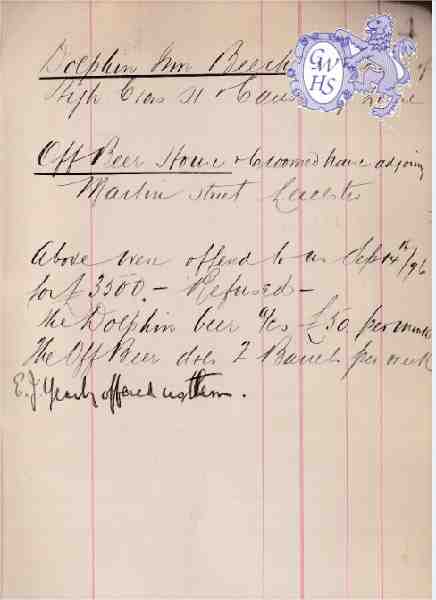 Dolphin Inn Beech of
High Cross St & Lane
Off Beer House & 6 roomed house adjoing
Martin Street Leicester
Above were offered to us Sept 14th/96
for £3500. – Refused –
The Dolphin beer a/cs £50. per month
The Off Beer does 7 Barrels per week
E.J. Yearby offered us them.
GWHS